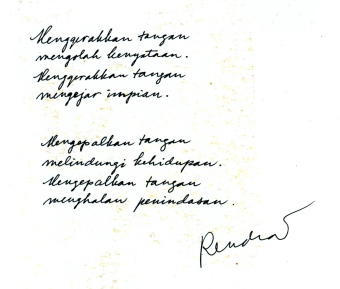 Menggerakkan tangan
mengolah kenyataan.
Menggerakkan tangan
mengejar impian.
Mengepalkan tangan
melindungi kehidupan.
Mengepalkan tangan
menghalau penindasan.
Rendra